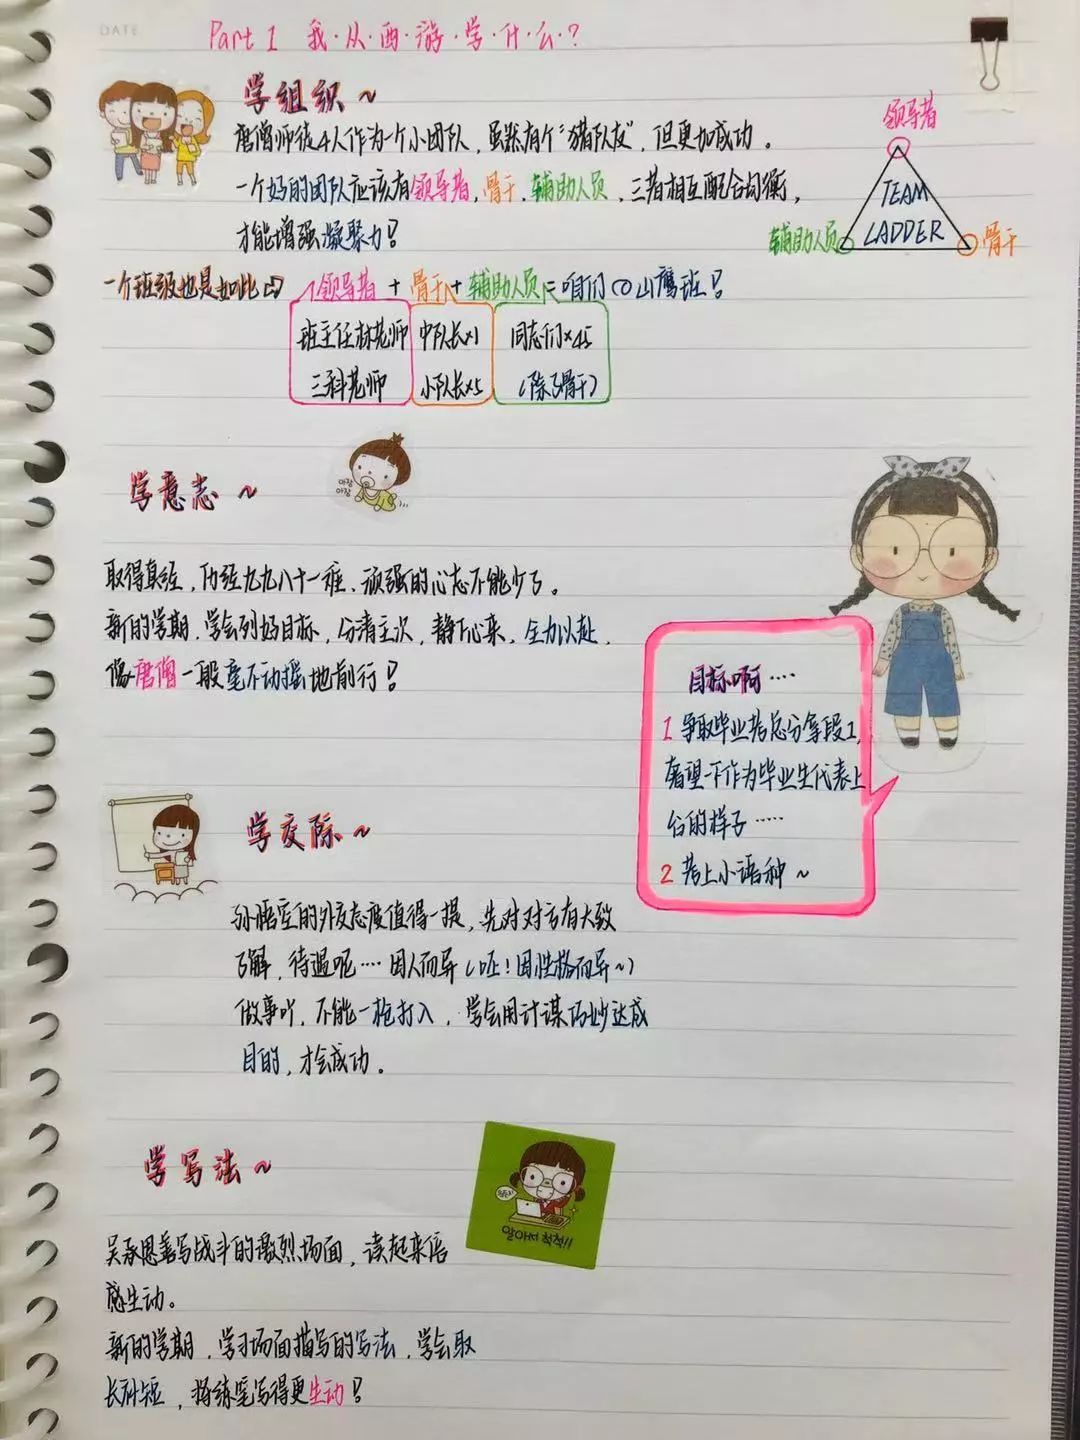 DATE
Part 1 我·从·西·游·学·什·么·?
学组织~
唐僧师徒4人作为一个小团队，虽然有个“猪队友”，但更加成功。
一个好的团队应该有领导者，骨干，辅助人员，三者相互配合均衡，
才能增强凝聚力！
领导者
TEAM
LADDER
辅助人员
骨干
一个班级也是如此⇨ 领导者+骨干+辅助人员=咱们山鹰班！
班主任林老师 中队长×1 同志们×45
三科老师 小队长×5 (除了骨干)
学意志~
아장
아장
取得真经，历经九九八十一难，顽强的心志不能少了。
新的学期，学会列好目标，分清主次，静下心来，全力以赴，
像唐僧一般毫不动摇地前行！
目标啊……
1 争取毕业考总分等段1，
奢望一下作为毕业生代表上
台的样子……
2 考上小语种~
学交际~
孙悟空的外交态度值得一提，先对对方有大致
了解，待遇呢……因人而异(呸！因性格而异~)
做事吖，不能一枪打入，学会用计谋巧妙达成
目的，才会成功。
学写法~
알아서 척척!!
吴承恩善写战斗的激烈场面，读起来倍
感生动。
新的学期，学习场面描写的写法，学会取
长补短，将练笔写得更生动！